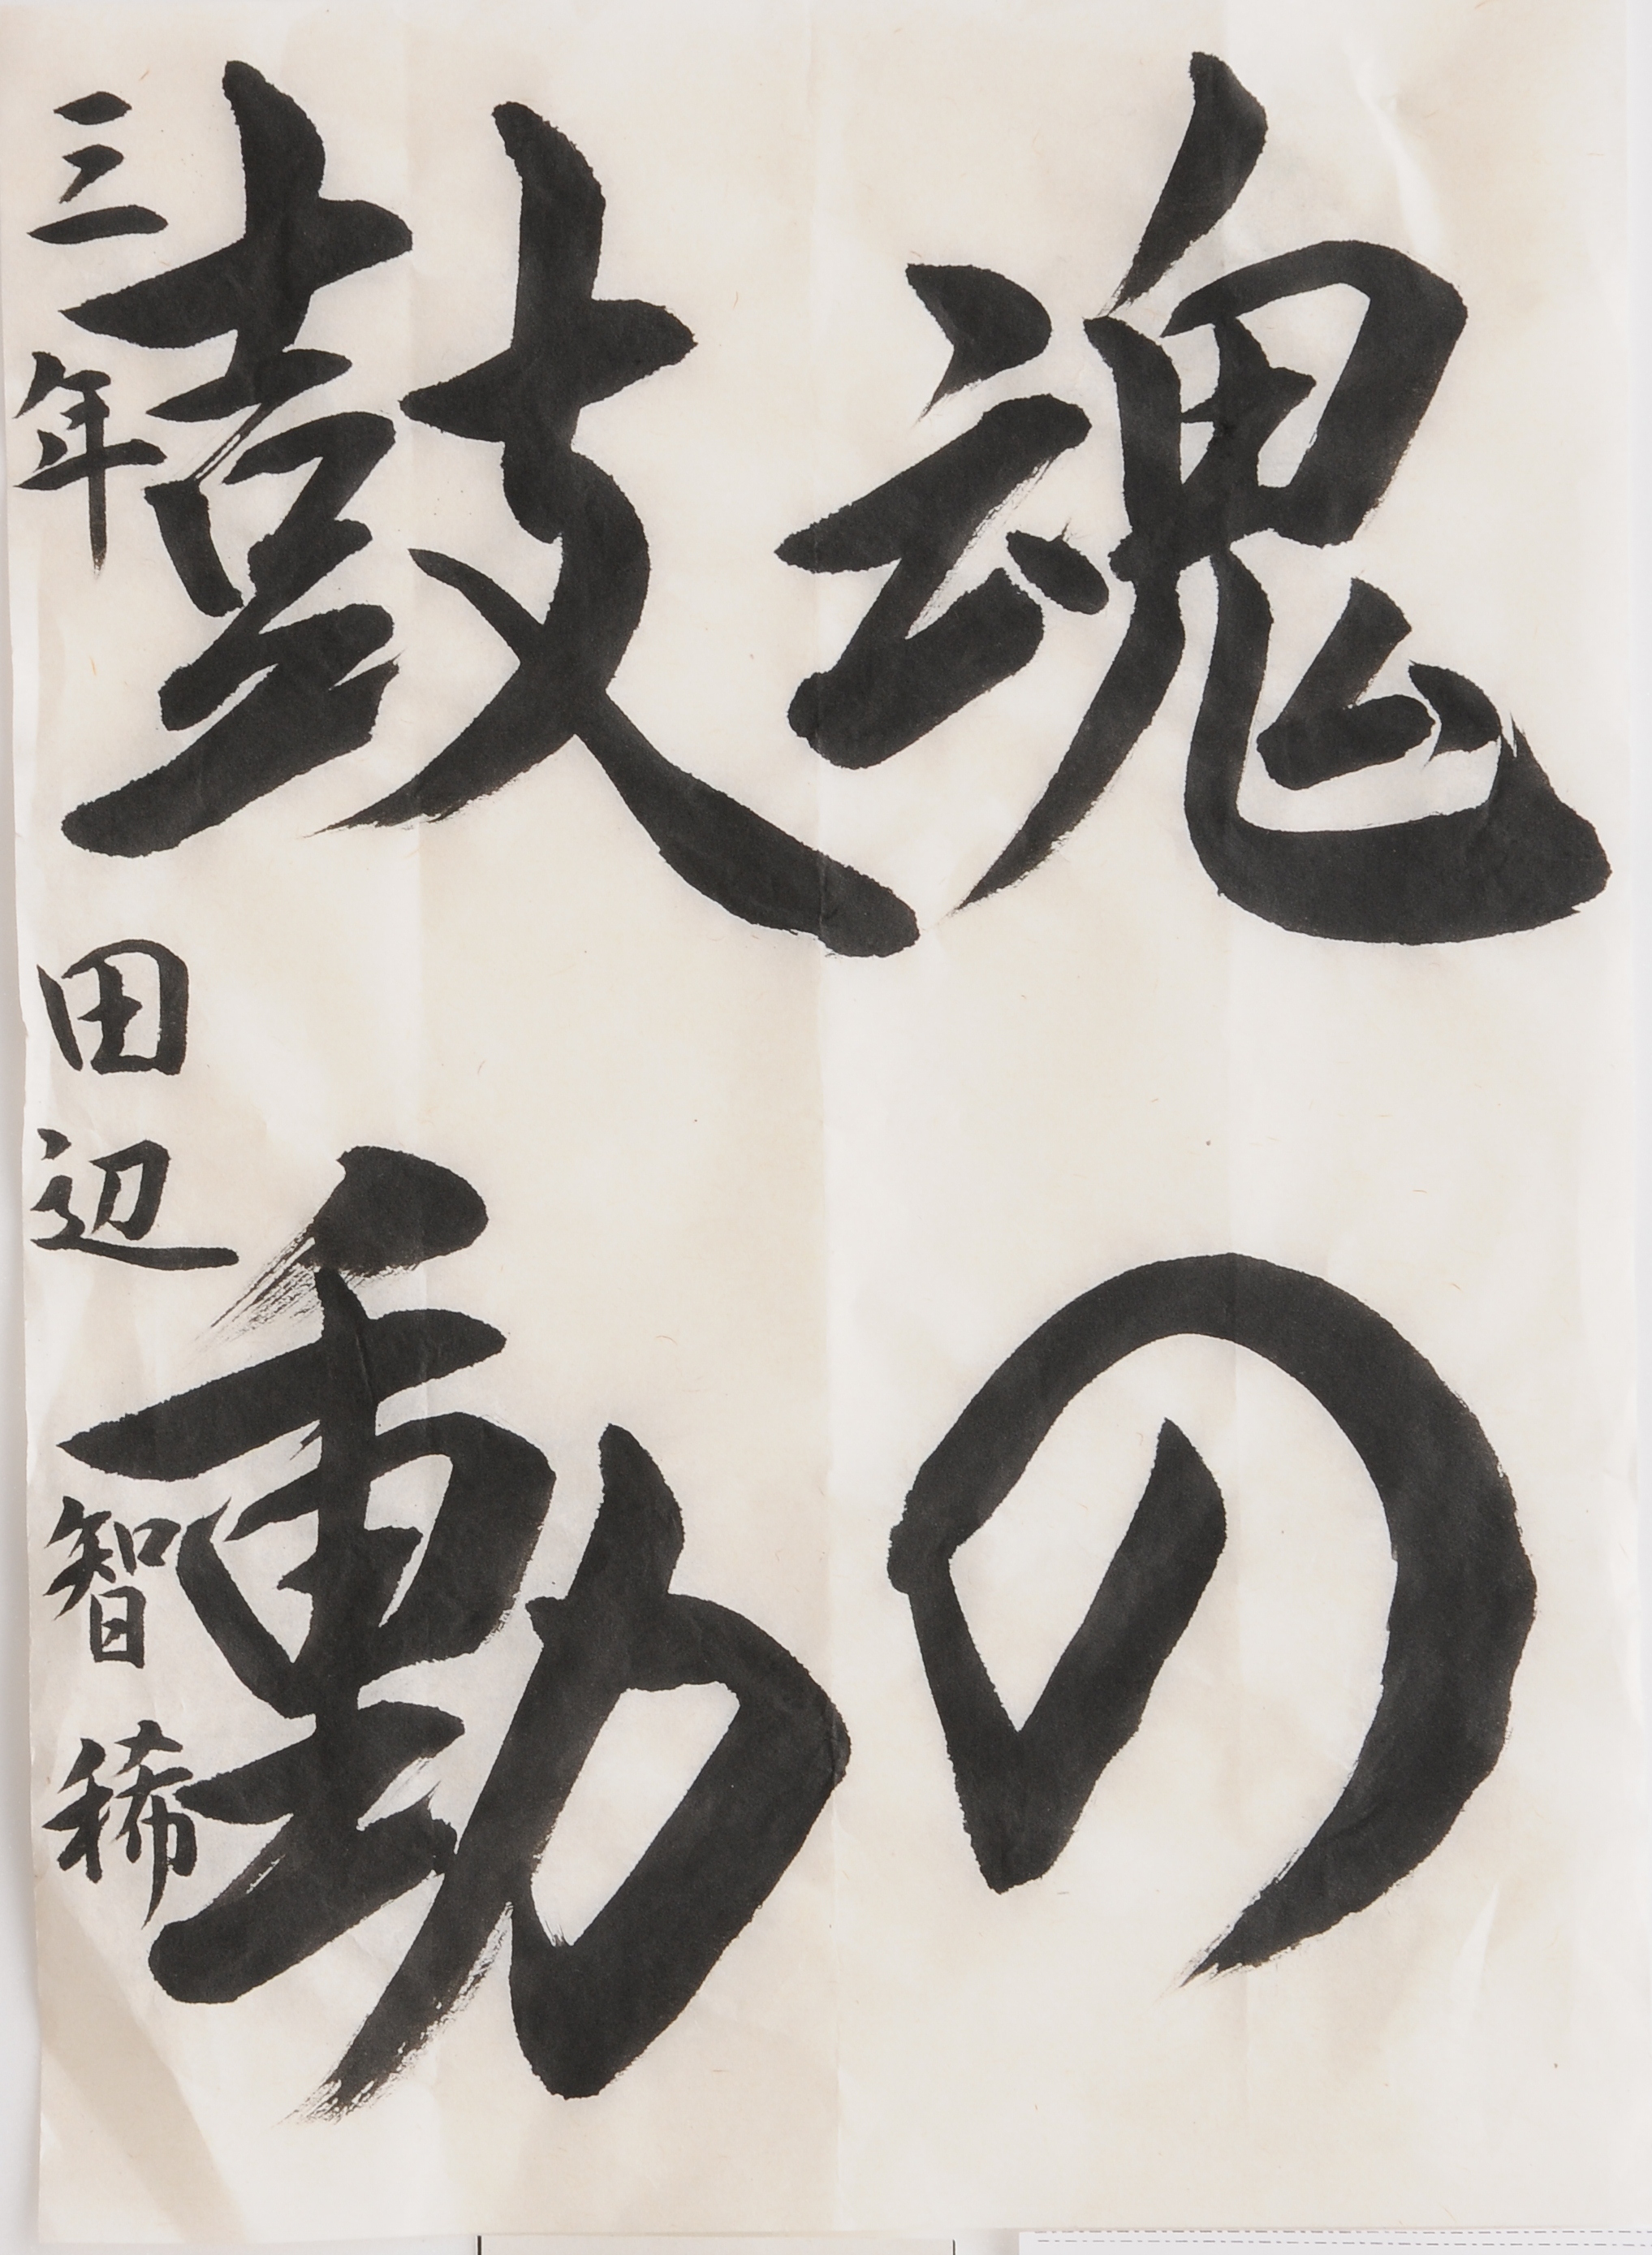 魂の
鼓動
三年 田辺智稀